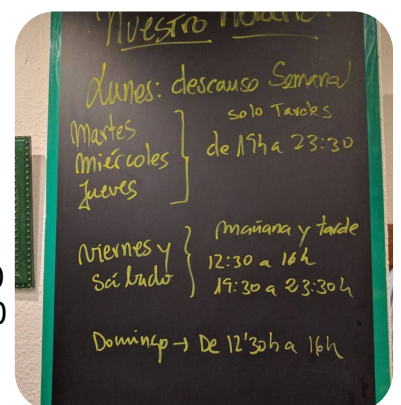 Nuestro Horario:
Lunes: descanso Semanal
solo Tardes
Martes
Miércoles
Jueves
de 19h a 23:30
Viernes y
Sábado
mañana y tarde
12:30 a 16h
19:30 a 23:30h
Domingo → De 12'30h a 16h
0
0